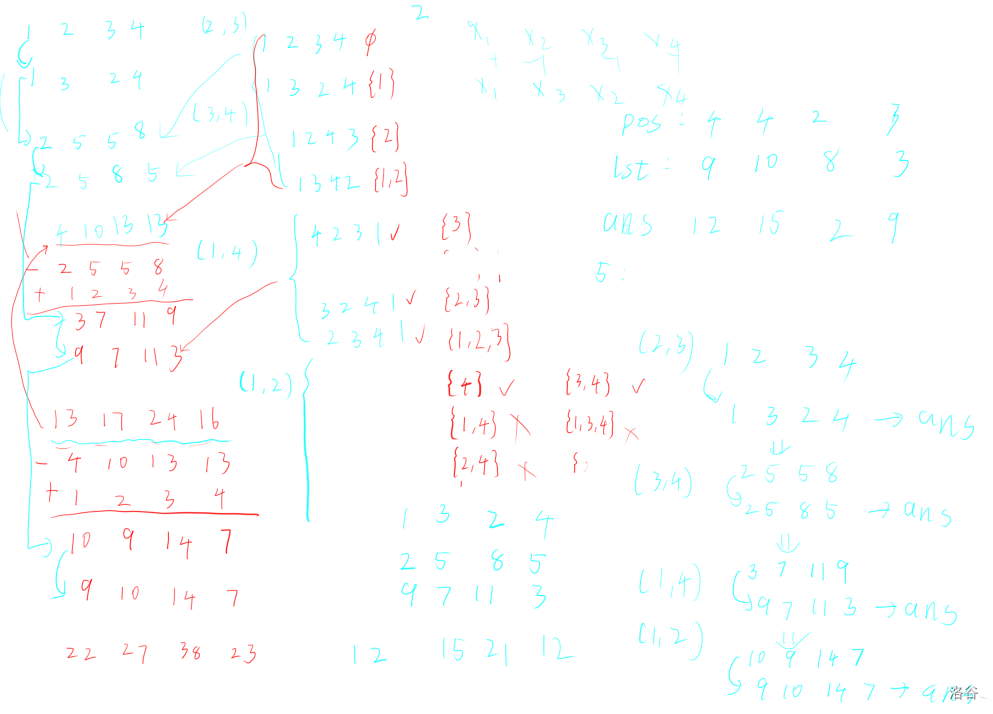 1 2 3 4 (2,3)
1 3 2 4
2 5 5 8
(3,4)
2 5 8 5
4 10 13 13
(1,4)
- 2 5 5 8
+ 1 2 3 4
3 7 11 9
9 7 11 3
(1,2)
13 17 24 16
- 4 10 13 13
+ 1 2 3 4
10 9 14 7
9 10 14 7
22 27 38 23
1 2 3 4 ϕ
1 3 2 4 {1}
1 2 4 3 {2}
1 3 4 2 {1,2}
4 2 3 1 ✓ {3}
3 2 4 1 ✓ {2,3}
2 3 4 1 ✓ {1,2,3}
{4} ✓ {3,4} ✓
{1,4} × {1,3,4} ×
{2,4} × {
1 3 2 4
2 5 8 5
9 7 11 3
12 15 21 12
2
x₁ x₂ x₃ x₄
+ + + +
x₁ x₃ x₂ x₄
pos: 4 4 2 3
lst: 9 10 8 3
ans 12 15 2 9
5:
(2,3) 1 2 3 4
1 3 2 4 → ans
⇓
(3,4) 2 5 5 8
2 5 8 5 → ans
⇓
(1,4) 3 7 11 9
9 7 11 3 → ans
⇓
(1,2) 10 9 14 7
9 10 14 7 → ans
洛谷